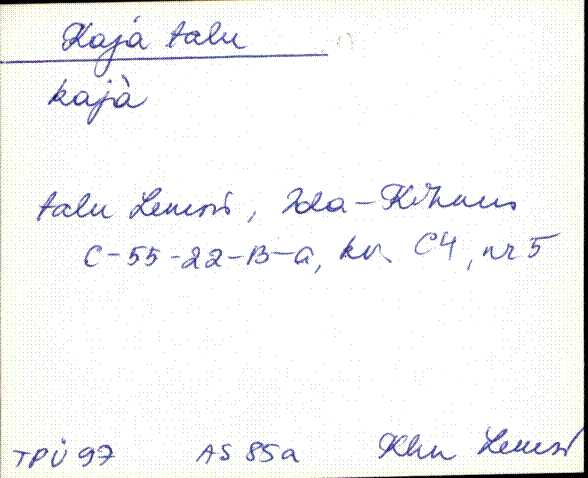 Kajá talu
kajà
talu Lemsis, Ida-Kihnus
C-55-22-B-a, kv. C4, nr 5
TPÜ 97 AS 85a Khn Lemsi